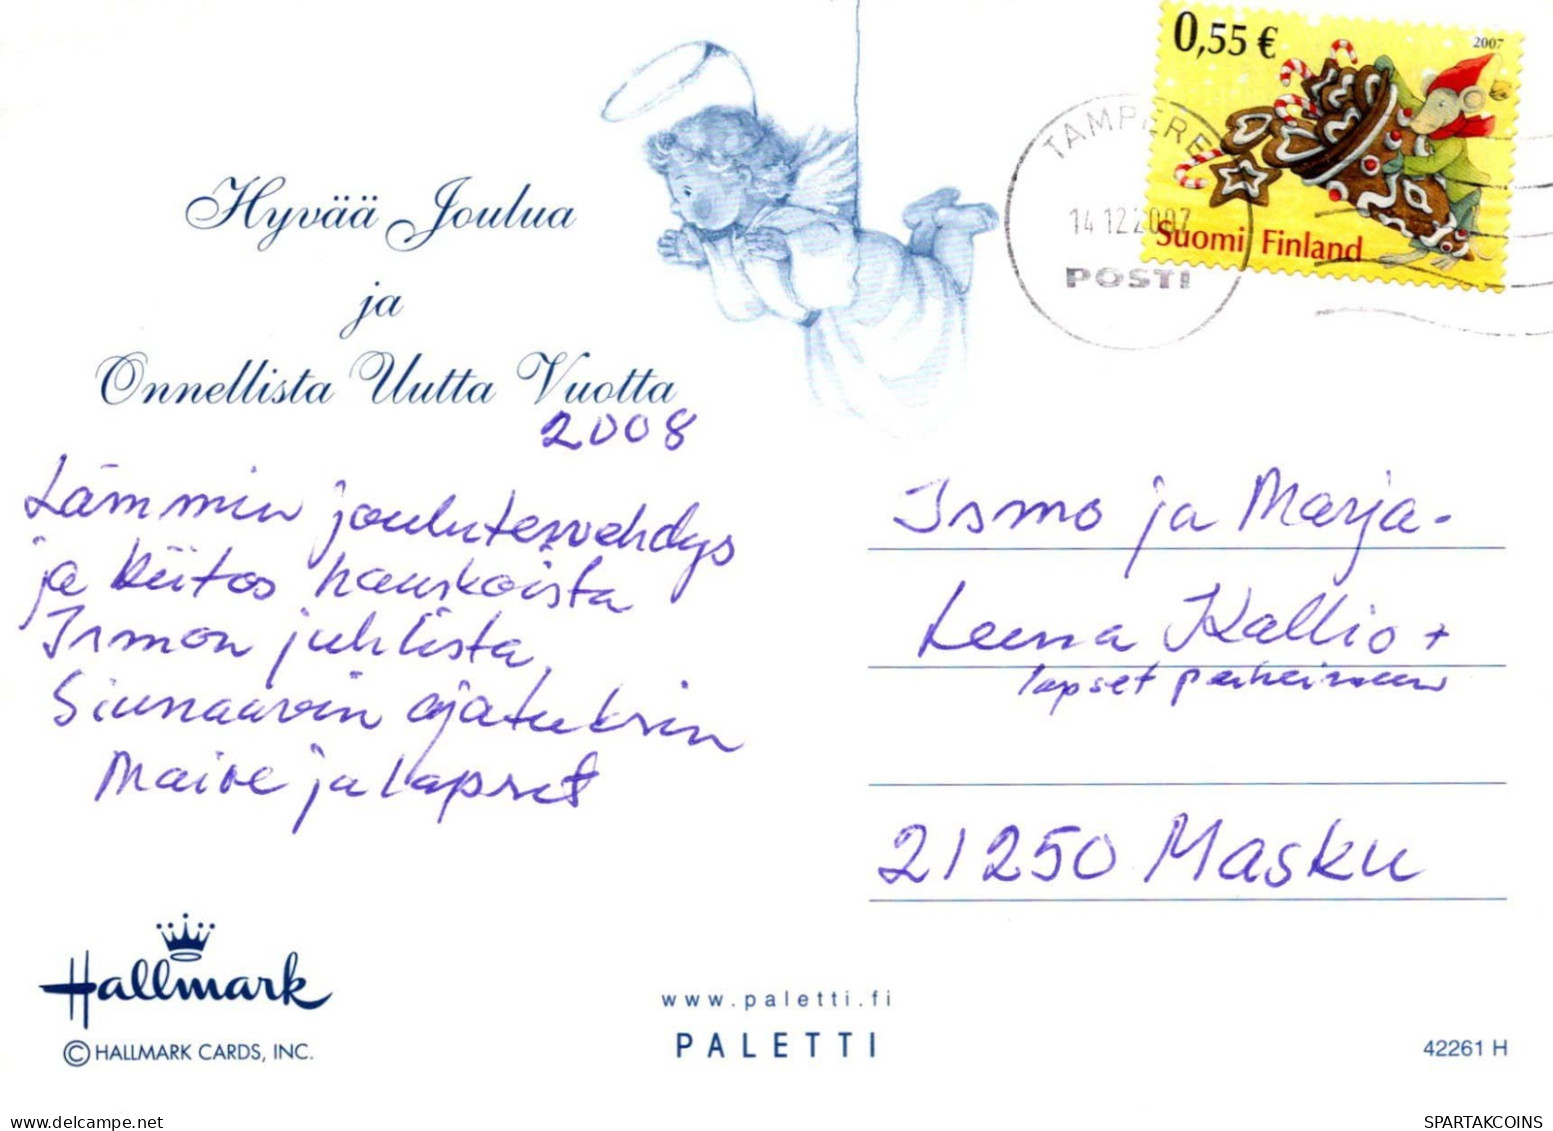 0,55 €
2007
TAMPERE
14.12.2007
POSTI
Suomi Finland
Hyvää Joulua
ja
Onnellista Uutta Vuotta
2008
Lämmin joulutervehdys
ja kiitos hauskoista
Ismon juhlista,
Siunaavin ajatuksin
Maire ja lapset
Ismo ja Marja-
Leena Kallio +
lapset perheineen
21250 Masku
Hallmark
© HALLMARK CARDS, INC.
www.paletti.fi
PALETTI
42261 H
www.delcampe.net
SPARTAKCOINS